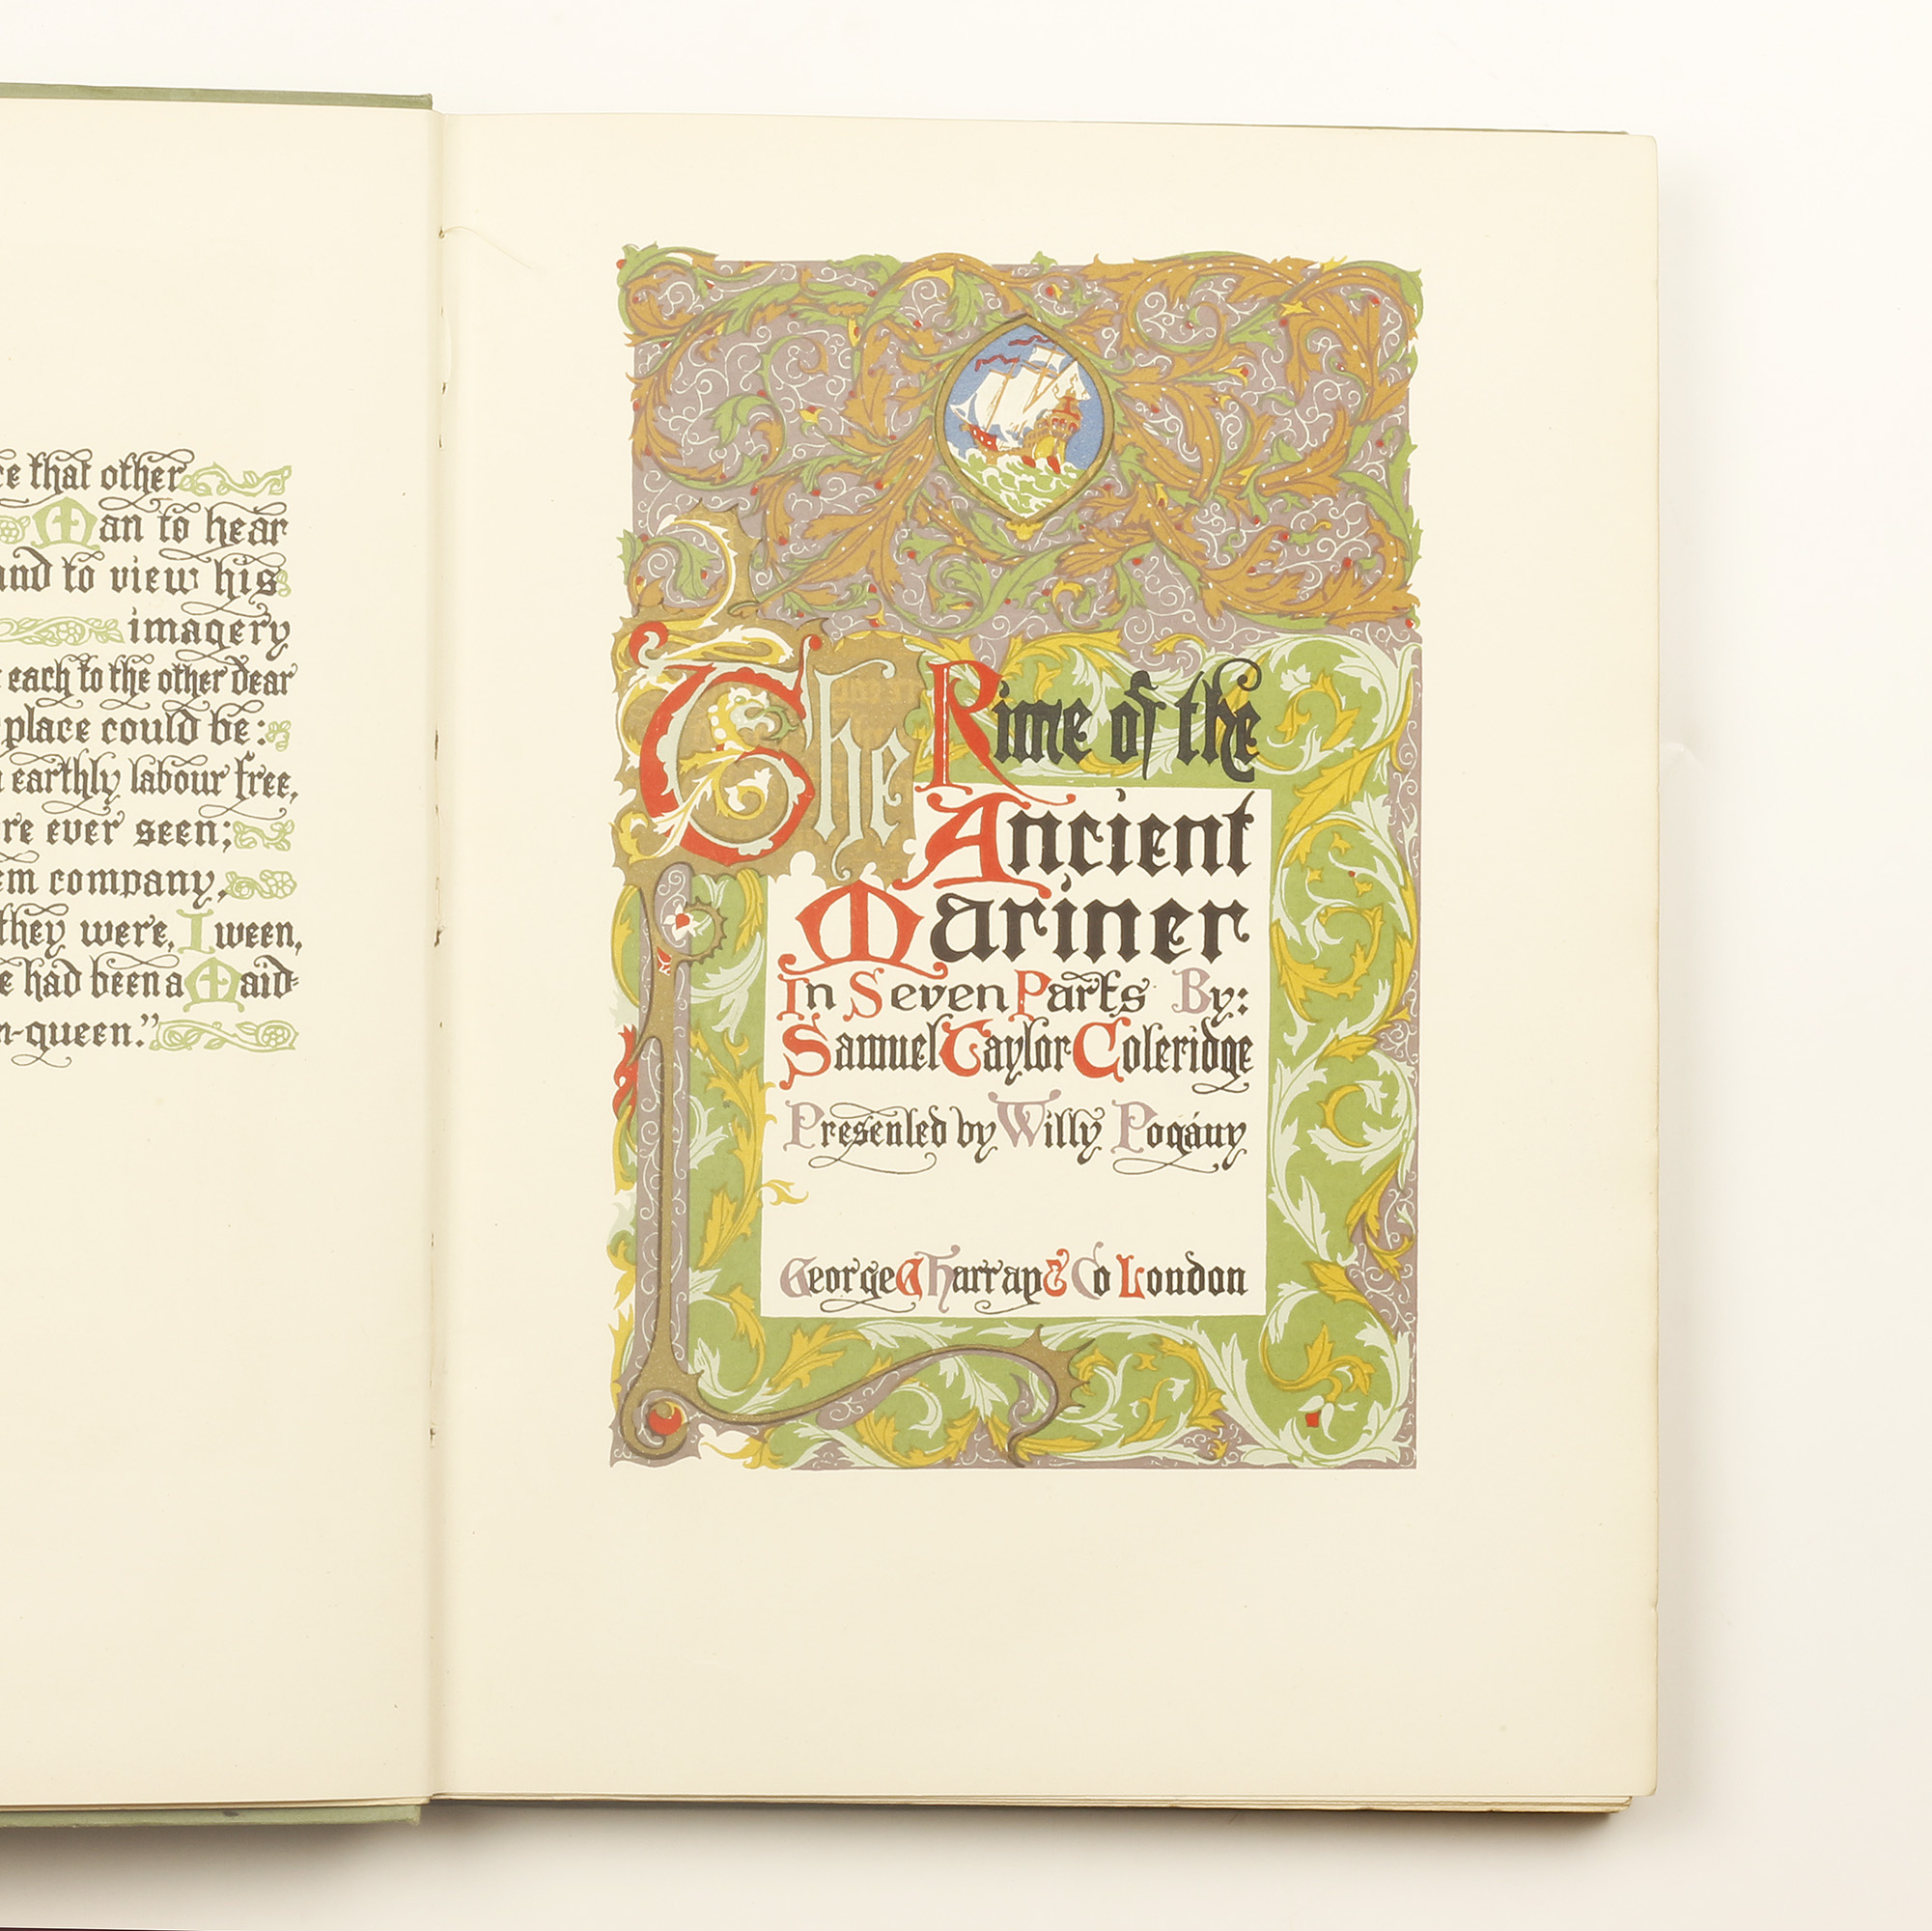 that other
Man to hear
and to view his
imagery
each to the other dear
place could be:
earthly labour free,
ever seen;
company,
they were, I ween,
had been a Maid-
-queen.”
The Rime of the
Ancient
Mariner
In Seven Parts By:
Samuel Taylor Coleridge
Presented by Willy Pogány
George G Harrap & Co London